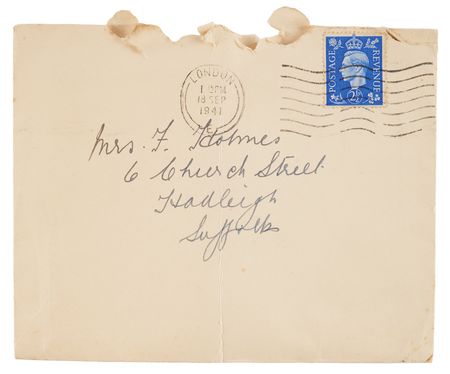 LONDON
18 SEP
1941
POSTAGE
REVENUE
2½
Mrs. F. Holmes
6 Church Street
Hadleigh
Suffolk